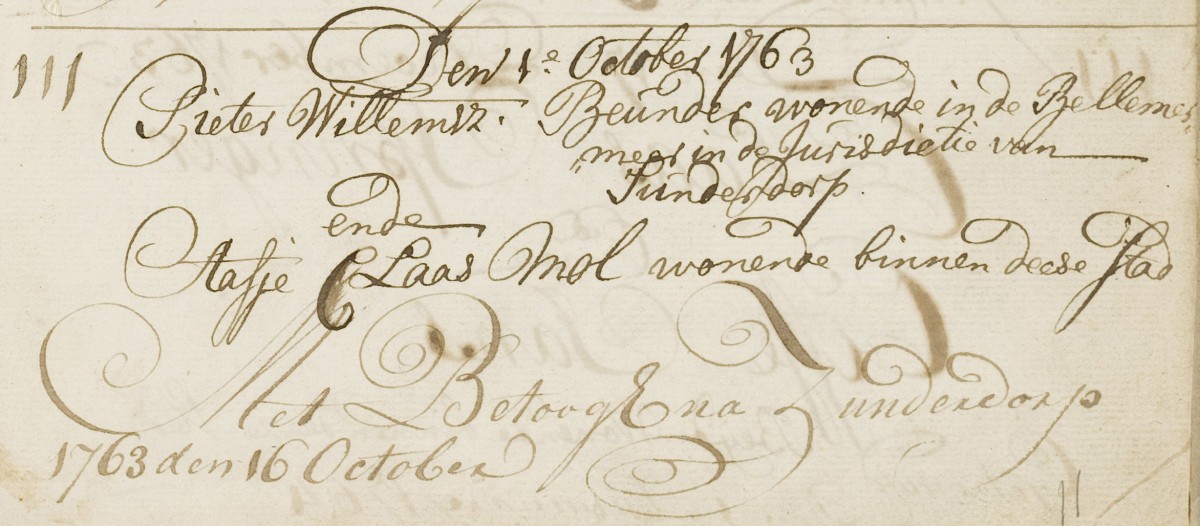 111 Den 1e October 1763
Pieter Willemsz. Beunder wonende in de Bellemer„
„meer in de Jurisdictie van
Sunderdorp.
ende
Aafje Claas Mol wonende binnen deese stad
Met Betoog Na Zunderdorp
1763 den 16 October